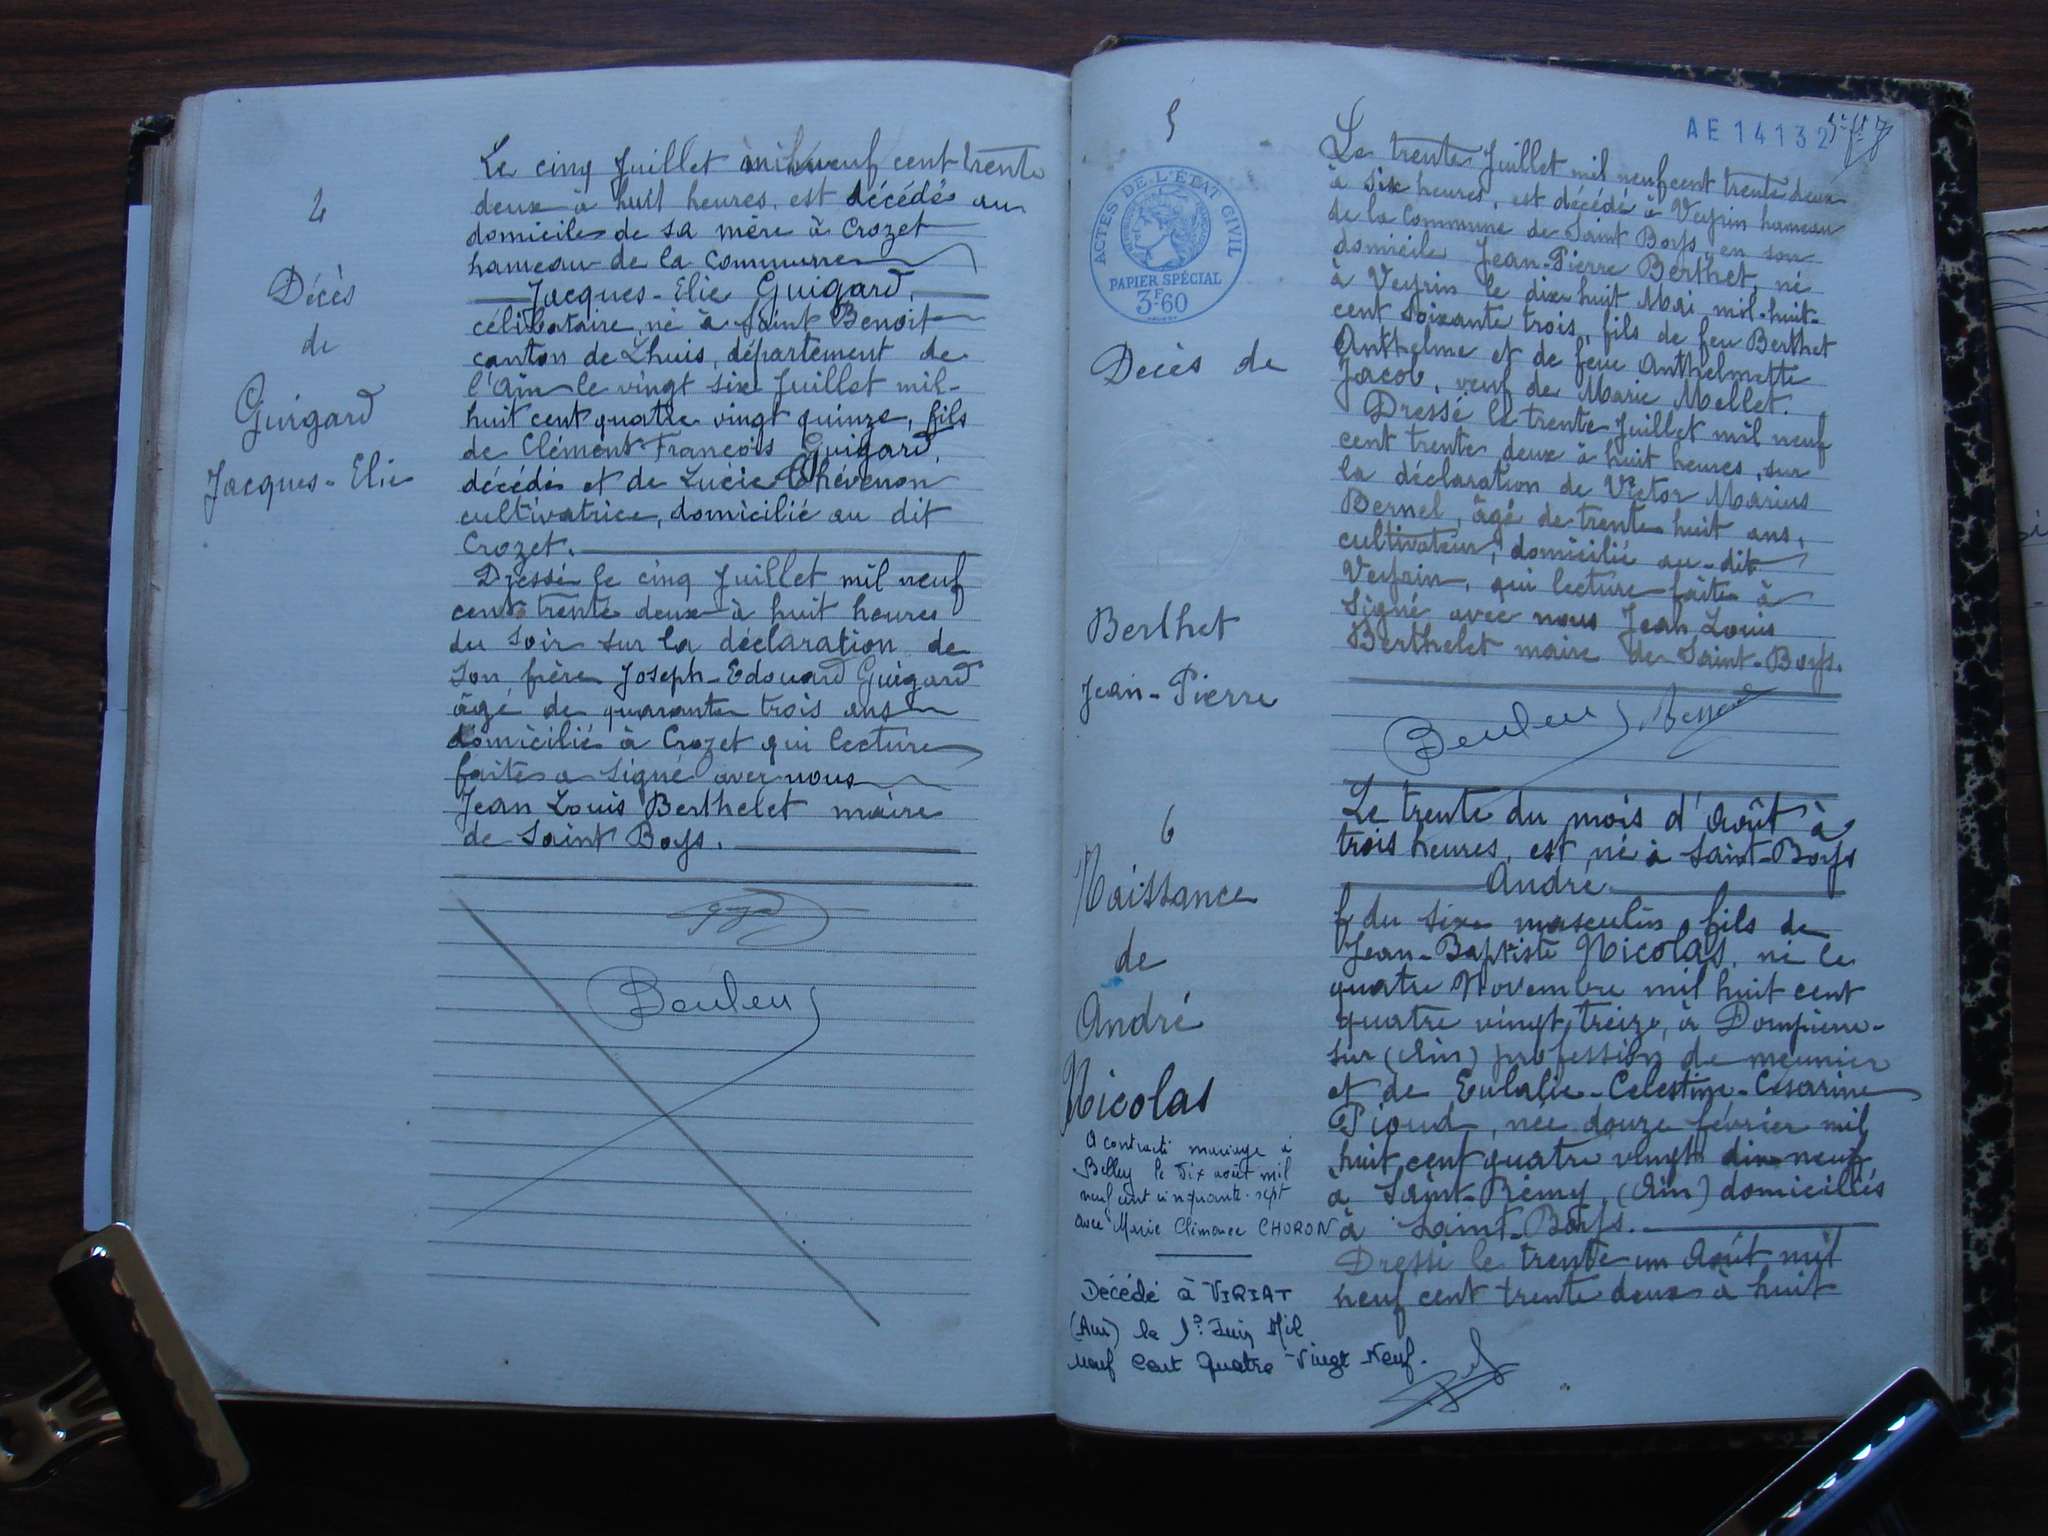 4
Décès
de
Guigard
Jacques-Elie
Le cinq Juillet mil neuf cent trente
deux à huit heures, est décédé au
domicile de sa mère à Crozet
hameau de la commune
Jacques-Elie Guigard,
célibataire, né à Saint Benoit
canton de Lhuis, département de
l'Ain le vingt six Juillet mil-
huit cent quatre vingt quinze, fils
de Clément-François Guigard,
décédé et de Lucie Chévenon
cultivatrice, domicilié au dit
Crozet.
Dressé le cinq Juillet mil neuf
cent trente deux à huit heures
du soir sur la déclaration de
son frère Joseph-Edouard Guigard
âgé de quarante trois ans
domicilié à Crozet qui lecture
faite a signé avec nous
Jean Louis Berthelet maire
de Saint Boys.
5
AE 14132
ACTES DE L'ÉTAT CIVIL
PAPIER SPÉCIAL
3F.60
Décès de
Berthet
Jean-Pierre
Le trente Juillet mil neuf cent trente deux
à six heures, est décédé à Veyrin hameau
de la Commune de Saint Boys, en son
domicile Jean-Pierre Berthet, né
à Veyrin le dix huit Mai mil-huit-
cent soixante trois, fils de feu Berthet
Anthelme et de feue Anthelmette
Jacob, veuf de Marie Mellet.
Dressé le trente Juillet mil neuf
cent trente deux à huit heures, sur
la déclaration de Victor Marius
Bernel, âgé de trente huit ans,
cultivateur, domicilié au-dit
Veyrin, qui lecture faite à
signé avec nous Jean Louis
Berthelet maire de Saint-Boys.
6
Naissance
de
André
Nicolas
A contracté mariage à
Belley le dix août mil
neuf cent cinquante-sept
avec Marie Clémence CHORON
Décédé à VIRIAT
(Ain) le Juin Mil
Neuf Cent Quatre-Vingt-Neuf.
Le trente du mois d'Août à
trois heures, est né à Saint-Boys
André
du sixe masculin, fils de
Jean-Baptiste Nicolas, né le
quatre Novembre mil huit cent
quatre vingt treize, à Dompierre-
sur (Ain) profession de meunier
et de Eulalie-Celestine-Cesarine
Pioud, née douze février mil
huit cent quatre vingt dix neuf
à Saint-Rémy, (Ain) domiciliés
à Saint-Boys.
Dressé le trente un Août mil
neuf cent trente deux à huit